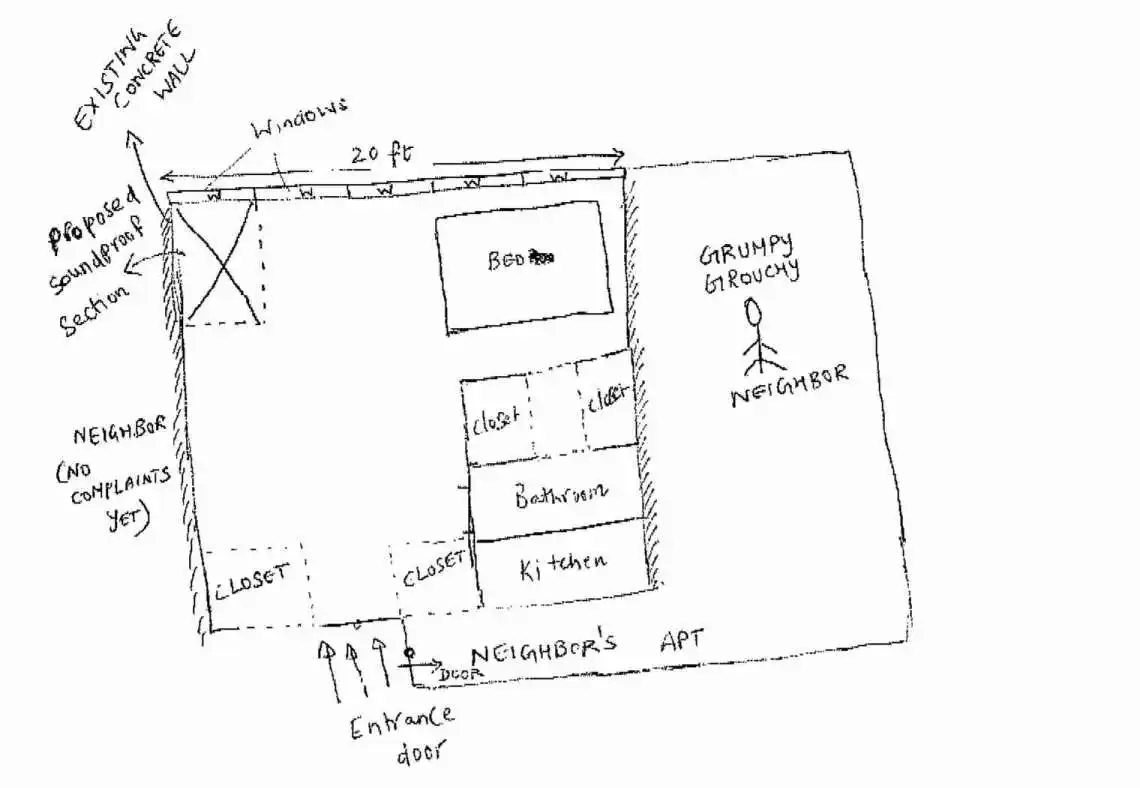 EXISTING
CONCRETE
WALL
Windows
20 ft
W W W W W
Proposed
Soundproof
Section
BED
GRUMPY
GROUCHY
NEIGHBOR
Closet
Closet
NEIGHBOR
(NO
COMPLAINTS
YET)
Bathroom
CLOSET
CLOSET
Kitchen
NEIGHBOR'S APT
DOOR
Entrance
door